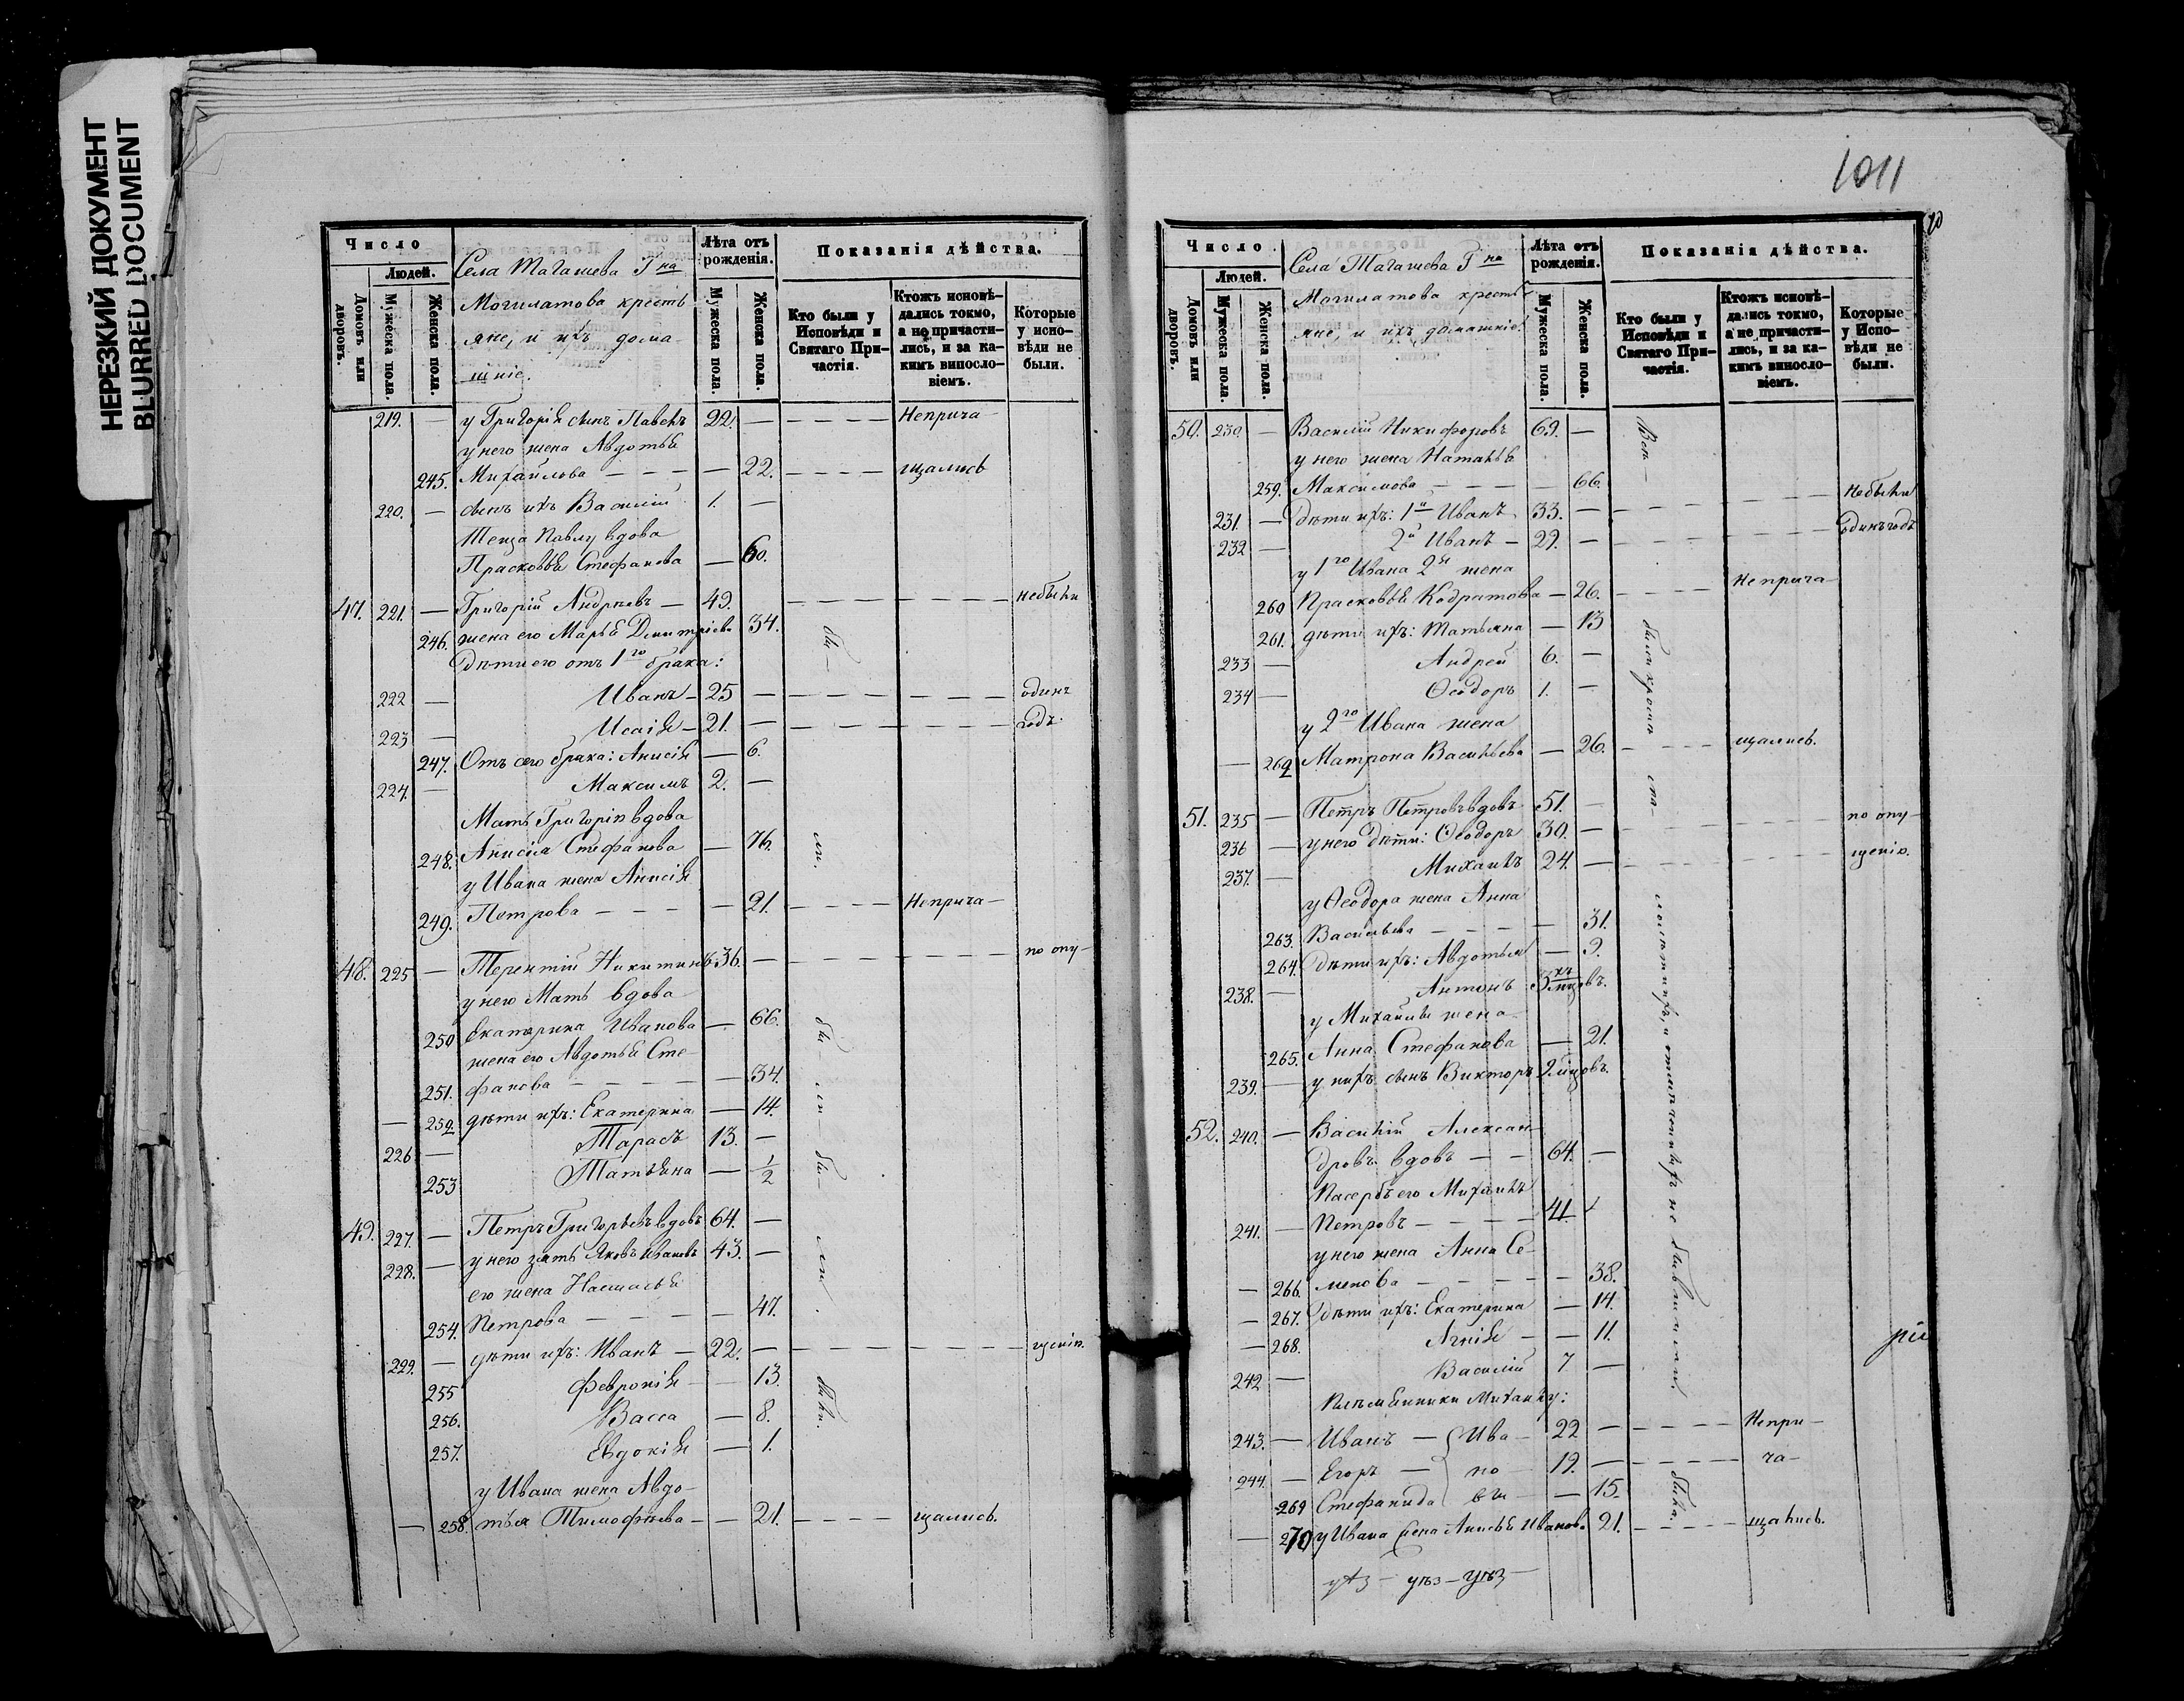 НЕРЕЗКИЙ ДОКУМЕНТ
BLURRED DOCUMENT
Число
Людей.
Домовъ или дворовъ.
Мужеска пола.
Женска пола.
Села Тагашева Гна
Могилатова кресть
яне, и ихъ дома-
шніе.
Лѣта отъ рожденія.
Мужеска пола.
Женска пола.
Показанія дѣйства.
Кто были у Исповѣди и Святаго Причастія.
Ктожъ исповѣдались токмо, а не причастились, и за какимъ винословіемъ.
Которые у исповѣди не были.
219. — у Григорія сынъ Павелъ 22. — — — — — Неприча-
у него жена Авдотья
245. Михайлова — — — — 22. — — — — щались
220. — сынъ ихъ Василій 1. —
Теща Павлу вдова
Прасковья Стефанова — 60.
47. 221. — Григорій Андреевъ — 49. — — — — — — небыли
246. жена его Марья Димитріева 34. бы-
Дѣти его отъ 1го брака:
222 — Иванъ — 25 — — — — — — — одинъ
223 — Исаія — 21. — — — — — — — годъ.
247. Отъ сего брака: Анисія — 6.
224. — Максимъ 2. —
Мать Григорія вдова
248. Анисія Стефанова — 76. ли.
у Ивана жена Анисія
249. Петрова — — — — 21. — — — — Неприча-
48. 225 — Терентій Никитинъ 36. — — — — — — — по опу-
у него Мать вдова
250 Екатерина Иванова — 66. бы
жена его Авдотья Сте-
251. фанова — — — — 34. ли-
— 252 дѣти ихъ: Екатерина — 14.
226 — Тарасъ 13. —
253 Татьяна — 1/2 бы-
49. 227. — Петръ Григорьевъ вдовъ 64. —
228. — у него зять Яковъ Ивановъ 43. — ли.
его жена Настасья
254. Петрова — — — — 47.
229. — дѣти ихъ: Иванъ — 22. — — — — — — — щенію.
255 Февронія — — 13. были.
256. Васса — 8.
257. Евдокія — 1.
у Ивана жена Авдо-
— 258. тья Тимофѣева — — 21. — — — — щались.
1011
Число
Людей.
Домовъ или дворовъ.
Мужеска пола.
Женска пола.
Села Тагашева Гна
Могилатова кресть
яне, и ихъ домашніе.
Лѣта отъ рожденія.
Мужеска пола.
Женска пола.
Показанія дѣйства.
Кто были у Исповѣди и Святаго Причастія.
Ктожъ исповѣдались токмо, а не причастились, и за какимъ винословіемъ.
Которые у Исповѣди не были.
50. 230. — Василій Никифоровъ 69. — Всѣ
у него жена Наталья
259. Максимова — — — — 66. — — — Небыли
231. — дѣти ихъ: 1й Иванъ 33. — — — — — одинъ годъ
232 — 2й Иванъ — 29. — — — — —
у 1го Ивана 2я жена
260 Прасковья Кодратова — 26. — — — — Неприча-
261. дѣти ихъ: Татьяна — 13 были кромѣ
233 — Андрей 6. —
234 — Ѳеодоръ 1. —
у 2го Ивана жена
— 262 Матрона Васильева — 26. — — — — щались.
51. 235 — Петръ Петровъ вдовъ 51. — по опу-
236 — у него дѣти: Ѳеодоръ 30. — — — — —
237. — Михаилъ 24. — — — — — щенію.
у Ѳеодора жена Анна
263. Васильева — — — — 31.
264. дѣти ихъ: Авдотья — 9.
238. — Антонъ 3хъ мцовъ.
у Михайлы жена
265. Анна Стефанова — 21.
239. — у нихъ сынъ Викторъ 2 мцовъ.
52. 240. — Василій Алексан-
дровъ вдовъ — — 64. —
Пасербъ его Михаилъ
241. — Петровъ — — — — 41.
у него жена Анна Се-
— 266. менова — — — — — 38.
— 267. дѣти ихъ: Екатерина — 14.
— 268. Агнія — — 11.
242 — Василій 7. —
Племянники Михаилу:
243. — Иванъ — Ива — 22 — — — — — Непри-
244. — Егоръ — но — 19. — — — — — ча-
269 Стефанида вы — — 15. были.
— 270 у Ивана жена Анисья Иванова 21. — — — — щались.